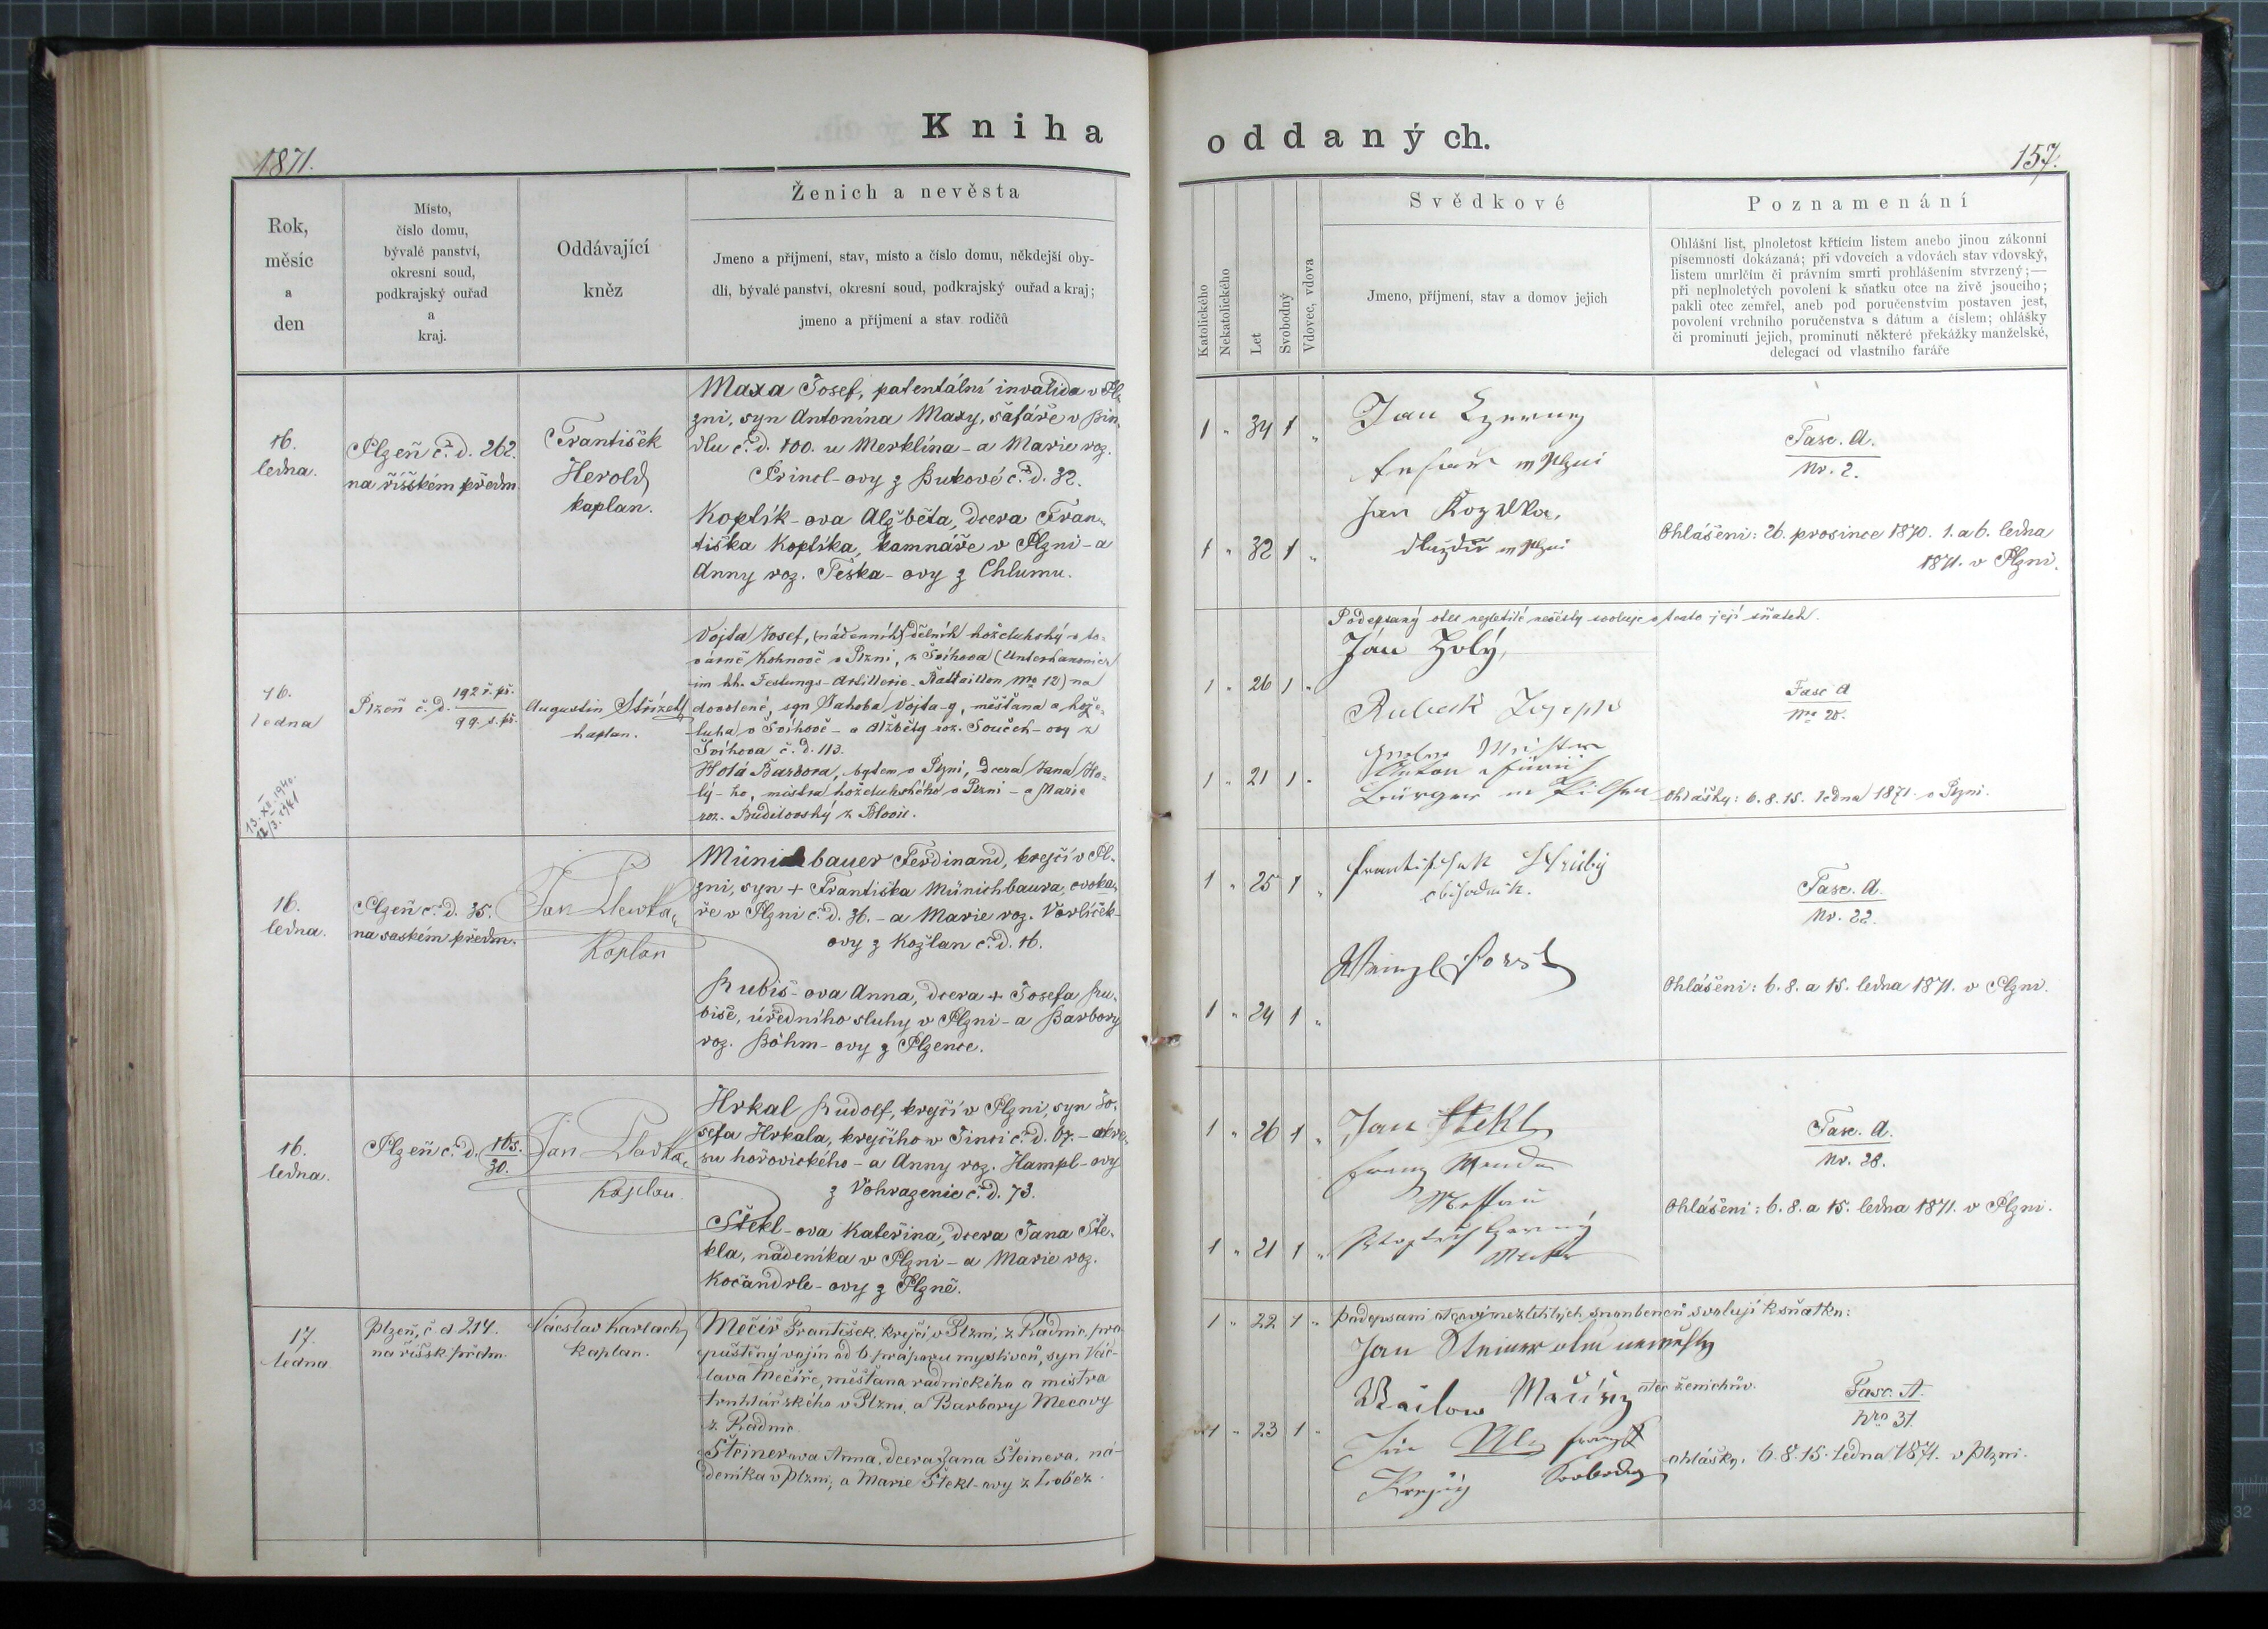 Kniha
oddaných.
1871.
157.
Rok,
měsíc
a
den
Místo,
číslo domu,
bývalé panství,
okresní soud,
podkrajský ouřad
a
kraj.
Oddávající
kněz
Ženich a nevěsta
Jmeno a příjmení, stav, místo a číslo domu, někdejší oby-
dlí, bývalé panství, okresní soud, podkrajský ouřad a kraj;
jmeno a příjmení a stav rodičů
Katolického
Nekatolického
Let
Svobodný
Vdovec, vdova
Svědkové
Jmeno, příjmení, stav a domov jejich
Poznamenání
Ohlášní list, plnoletost křticím listem anebo jinou zákonní
písemností dokázaná; při vdovcích a vdovách stav vdovský,
listem umrlčím či právním smrti prohlášením stvrzený;—
při neplnoletých povolení k sňatku otce na živě jsoucího;
pakli otec zemřel, aneb pod poručenstvím postaven jest,
povolení vrchního poručenstva s dátum a číslem; ohlášky
či prominutí jejich, prominutí některé překážky manželské,
delegací od vlastního faráře
16.
ledna.
Plzeň č. d. 262.
na říšském předm.
František
Herold
kaplan.
Maxa Josef, patentální invalida v Pl-
zni, syn Antonína Maxy, šafáře v Bin-
dlu č. d. 100. u Merklína - a Marie roz.
Princl-ovy z Bukové č. d. 32.
Koptík-ova Alžběta, dcera Fran-
tiška Koptíka, kamnáře v Plzni - a
Anny roz. Peška-ovy z Chlumu.
1 " 34 1 "
1 " 32 1 "
Jan
Jan Kozelka,
dlaždič w Plzni
Fasc. A.
Nr. 2.
Ohlášeni: 26. prosince 1870. 1. a 6. ledna
1871. v Plzni.
16.
ledna
13. XII. 1940.
12/3. 1941
Plzeň č. d. 192 ř. př.
99. s. př.
Augustin Střízek
kaplan.
Vojta Josef, (nádenník) dělník koželuhský v to-
várně Kohnově v Plzni, z Švihova (Unterkanonier
im kk. Festungs-Artillerie-Battaillon No 12) na
dovolené, syn Jakoba Vojta-y, měšťana a kože-
luha v Švihově - a Alžběty roz. Souček-ovy z
Švihova č. d. 113.
Holá Barbora, bytem v Plzni, dcera Jana Ho-
lý-ho, mistra koželuhského v Plzni - a Marie
roz. Budilovský z Blovic.
1 " 26 1 "
1 " 21 1 "
Podepsaný otec nezletilé nevěsty svoluje v tento její sňatek.
Ján Holý,
Bürger in Pilsen
Fasc A
No 20.
Ohlášky: 6. 8. 15. ledna 1871. v Plzni.
16.
ledna.
Plzeň č. d. 35.
na saském předm.
Jan
Kaplan
Münichbauer Ferdinand, krejčí v Pl-
zni, syn + Františka Münichbaura, cvoka-
ře v Plzni č. d. 36. - a Marie roz. Vorlíček-
ovy z Kožlan č. d. 16.
Rubiš-ova Anna, dcera + Josefa Ru-
biše, úředního sluhy v Plzni - a Barbory
roz. Böhm-ovy z Plzence.
1 " 25 1 "
1 " 24 1 "
Hrubý
obchodník.
Fasc. A.
Nr. 22.
Ohlášeni: 6. 8. a 15. ledna 1871. v Plzni.
16.
ledna.
Plzeň č. d. 165.
30.
Jan
Kaplan.
Hrkal Rudolf, krejčí v Plzni, syn Jo-
sefa Hrkala, krejčího w Jinci č. d. 67. - okre-
su hořovického - a Anny roz. Hampl-ovy
z Vohrazenic č. d. 73.
Štekl-ova Kateřina, dcera Jana Šte-
kla, nádeníka v Plzni - a Marie roz.
Kočandrle-ovy z Plzně.
1 " 26 1 "
1 " 21 1 "
Jan Štekl
Fasc. A.
Nr. 28.
Ohlášeni: 6. 8. a 15. ledna 1871. v Plzni.
17.
ledna
Plzeň, č. d 214.
na říšsk. předm.
Vácslav Karlach,
Kaplan.
Mečíř František, krejčí v Plzni, z Radnic, pro-
puštěný vojín od 6. práporu myslivců, syn Vác-
lava Mečíře, měšťana radnického a mistra
truhlářského v Plzni, a Barbory Mecovy
z Radnic.
Šteinerova Anna, dcera Jana Šteinera, ná-
deníka v Plzni, a Marie Štekl-ovy z Lobez.
1 " 22 1 "
1 " 23 1 "
Podepsaní otcové nezletilých snoubenců svolují k sňatku:
Jan Steiner
otec ženichův.
Krejčý
Svoboda
Fasc. A.
Nro 31.
ohlášky. 6. 8. 15. ledna 1871. v Plzni.